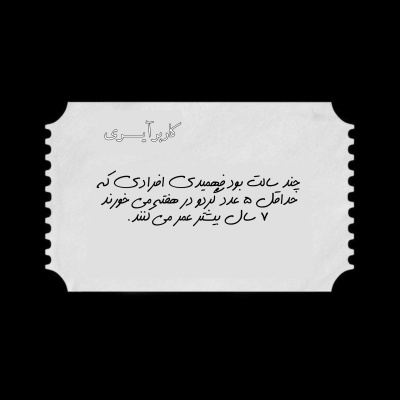 کاربر آیــــری
چند سالت بود فهمیدی افرادی که
حداقل ۵ عدد گردو در هفته می خورند
۷ سال بیشتر عمر می کنند.